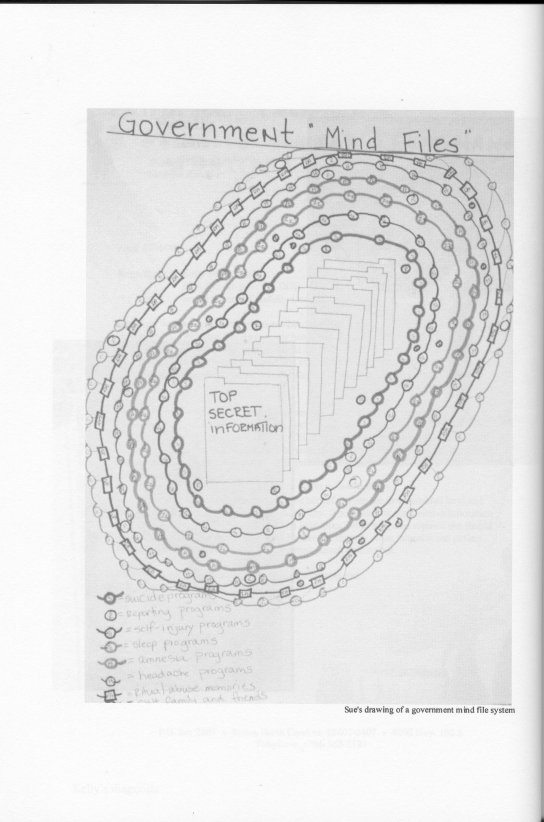 Government "Mind Files"
TOP
SECRET.
INFORMATION
= Suicide programs
= Reporting programs
= self-injury programs
= Sleep programs
= amnesia programs
= headache programs
= Ritual abuse memories
= cult family and friends
Sue's drawing of a government mind file system